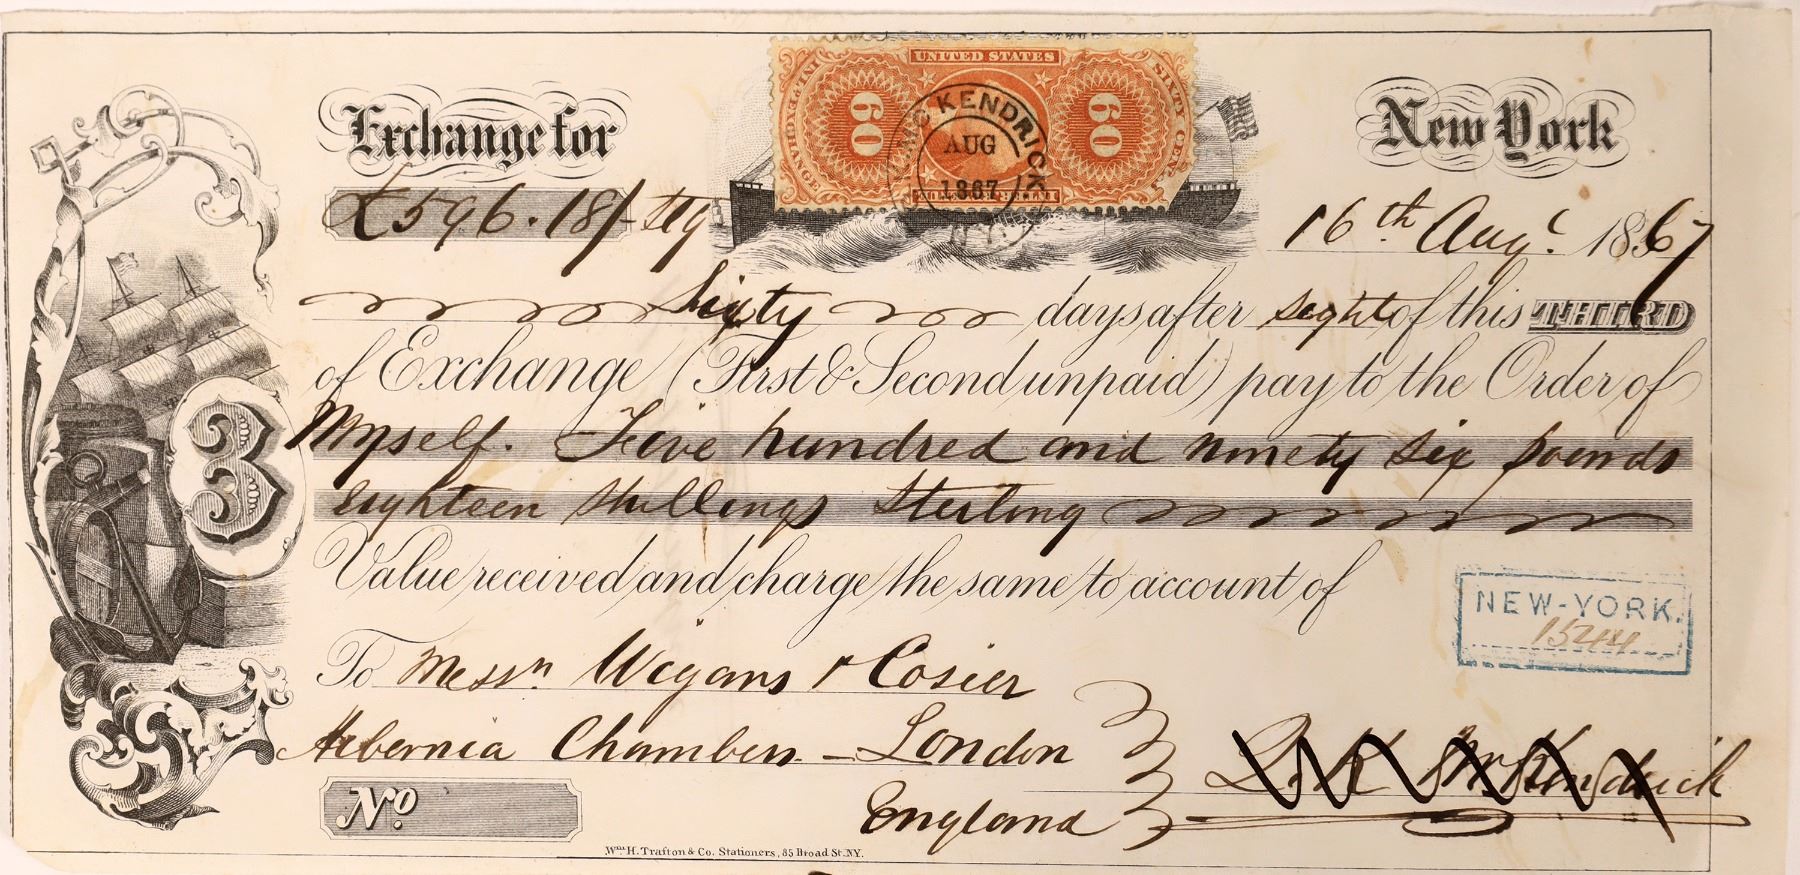 UNITED STATES
INTER REVENUE
SIXTY CENTS
60 60
MC KENDRICK
AUG
1867
N.Y.
Exchange for New York
£596.18/- Stg 16th Augt 1867
Sixty days after sight of this THIRD
of Exchange (First & Second unpaid) pay to the Order of
Myself. Five hundred and ninety six pounds
eighteen shillings Sterling
Value received and charge the same to account of
NEW-YORK.
To Messrs Wigans & Cosier
Hibernia Chambers - London
McKendrick
3
No
England
Wm. H. Trafton & Co. Stationers, 85 Broad St. N.Y.